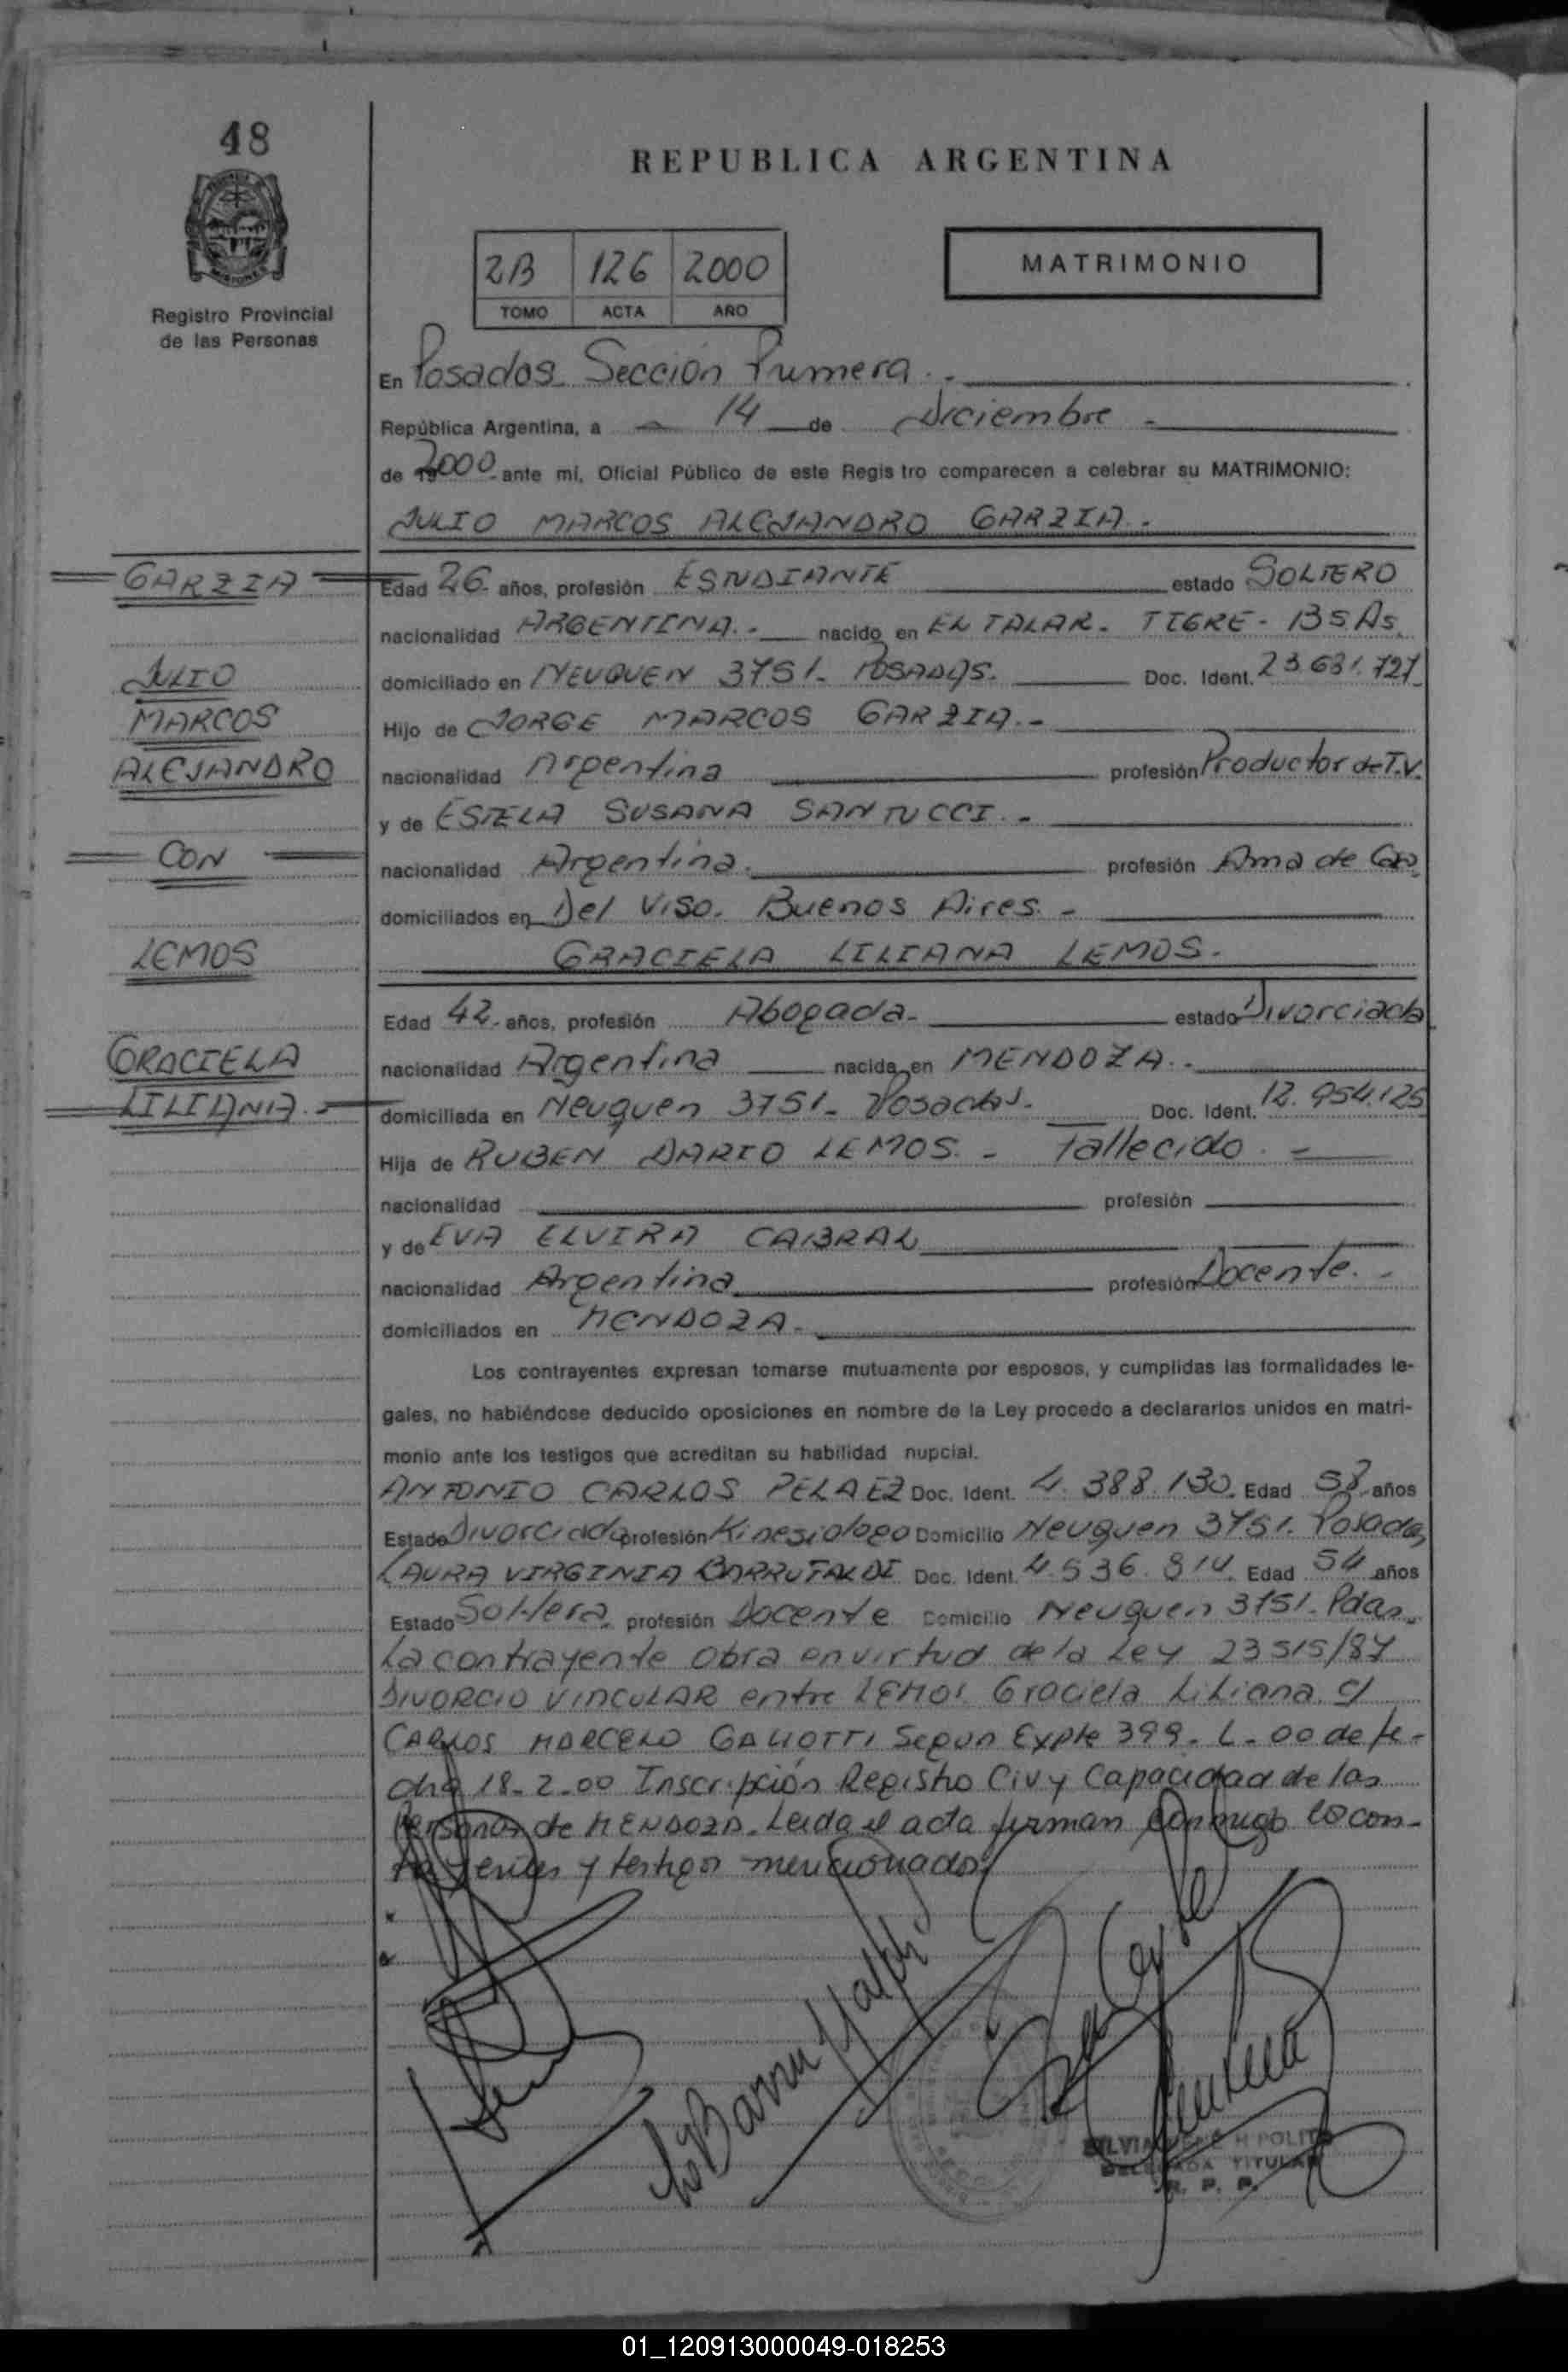 48
REPUBLICA ARGENTINA
2B 126 2000
TOMO ACTA AÑO
MATRIMONIO
Registro Provincial
de las Personas
En Posadas Sección Primera.-
República Argentina, a 14 de Diciembre -
de 2000 ante mi, Oficial Público de este Regis tro comparecen a celebrar su MATRIMONIO:
JULIO MARCOS ALEJANDRO GARZIA.-
GARZIA
JULIO
MARCOS
ALEJANDRO
CON
LEMOS
GRACIELA
LILIANA.-
Edad 26 años, profesión ESTUDIANTE estado SOLTERO
nacionalidad ARGENTINA.- nacido en EL TALAR- TIGRE- BS As.
domiciliado en NEUQUEN 3751- POSADAS. Doc. Ident. 23.631.727
Hijo de JORGE MARCOS GARZIA.-
nacionalidad Argentina profesión Productor de T.V.
y de ESTELA SUSANA SANTUCCI.-
nacionalidad Argentina. profesión Ama de Casa
domiciliados en Del Viso. Buenos Aires.-
GRACIELA LILIANA LEMOS.
Edad 42 años, profesión Abogada- estado Divorciada
nacionalidad Argentina nacida en MENDOZA.-
domiciliada en Neuquen 3751- Posadas. Doc. Ident. 12.954.125
Hija de RUBEN DARIO LEMOS.- Fallecido.-
nacionalidad profesión
y de EVA ELVIRA CABRAL
nacionalidad Argentina profesión Docente.-
domiciliados en MENDOZA.
Los contrayentes expresan tomarse mutuamente por esposos, y cumplidas las formalidades le-
gales, no habiéndose deducido oposiciones en nombre de la Ley procedo a declararlos unidos en matri-
monio ante los testigos que acreditan su habilidad nupcial.
ANTONIO CARLOS PELAEZ Doc. Ident. 4.388.130. Edad 58 años
Estado Divorciado profesión Kinesiologo Domicilio Neuquen 3751. Posadas
LAURA VIRGINIA BARRUTALDI Doc. Ident. 4.536.814. Edad 54 años
Estado Soltera profesión Docente Domicilio Neuquen 3751. Pdas.
La contrayente obra en virtud de la Ley 23515/87
DIVORCIO VINCULAR entre LEMOS Graciela Liliana c/
CARLOS MARCELO GALIOTTI Segun Expte 399-L-00 de fe-
cha 18-2-00 Inscripción Registro Civ y Capacidad de las
Personas de MENDOZA. Leida el acta firman conmigo los con-
trayentes y testigos mencionados
L. Barrutaldi
DELEGADA TITULAR
R. P. P.
01_120913000049-018253